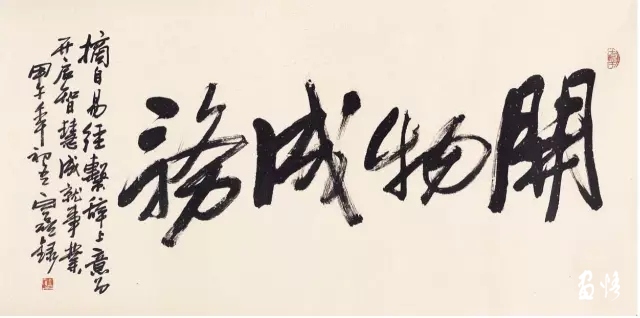 開物成務
摘自易經繫辭上意为
开启智慧成就事業
甲午年初